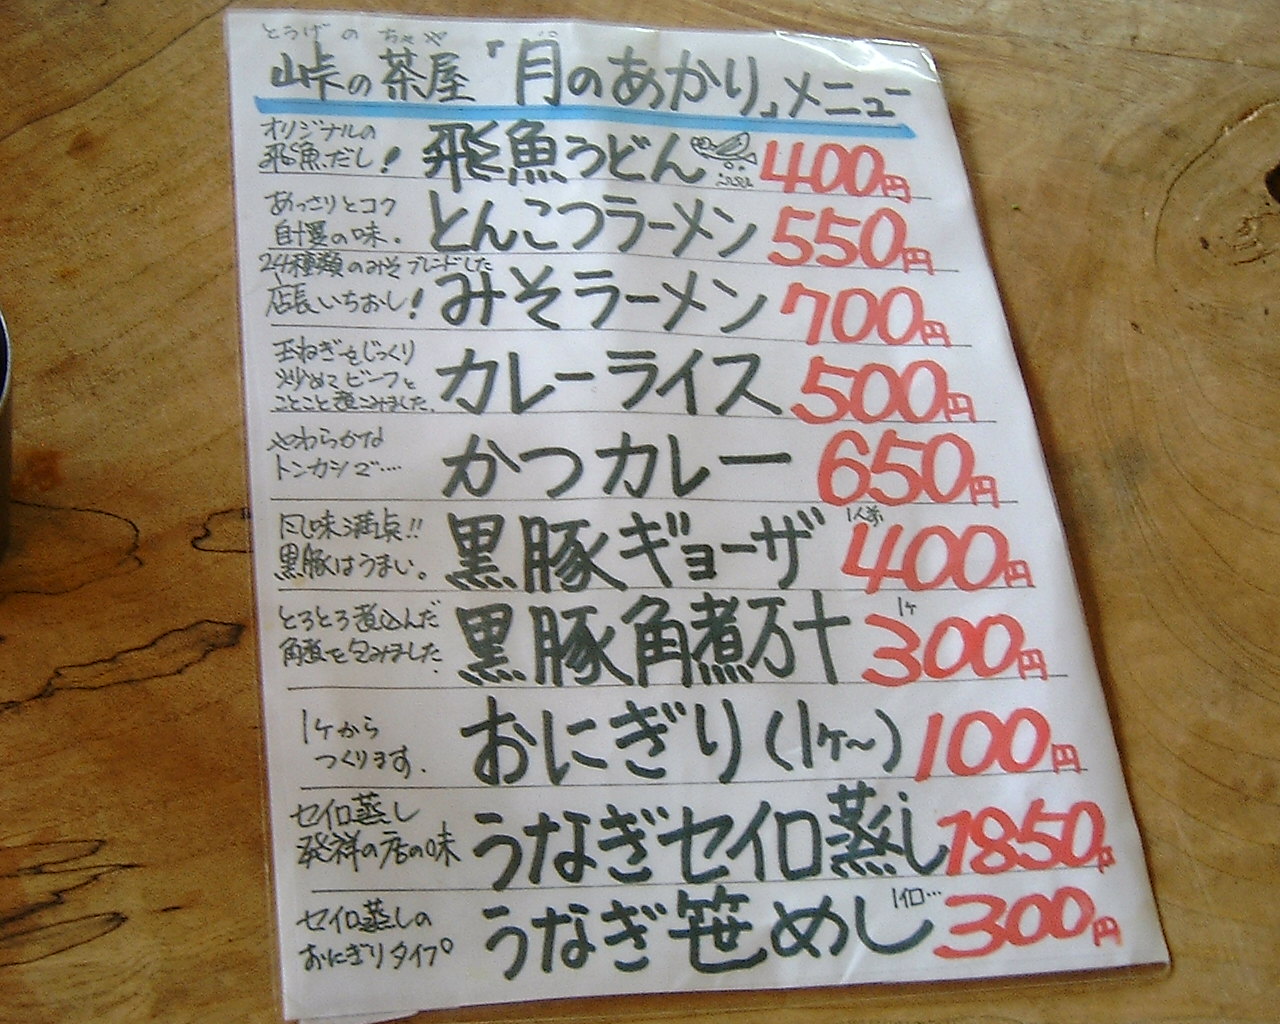 とうげの ちゃや
峠の茶屋「月のあかり」メニュー
オリジナルの
飛魚だし! 飛魚うどん 400円
あっさりとコク
自慢の味. とんこつラーメン 550円
24種類のみそブレンドした
店長いちおし! みそラーメン 700円
玉ねぎをじっくり
炒めてビーフと
ことこと煮こみました. カレーライス 500円
やわらかな
トンカツで‥‥ かつカレー 650円
風味満点!!
黒豚はうまい。 黒豚ギョーザ 1人前 400円
とろとろ煮込んだ
角煮を包みました 黒豚角煮万十 1ケ 300円
1ケから
つくります. おにぎり(1ケ〜) 100円
セイロ蒸し
発祥の店の味 うなぎセイロ蒸し 1850円
セイロ蒸しの
おにぎりタイプ うなぎ笹めし 300円